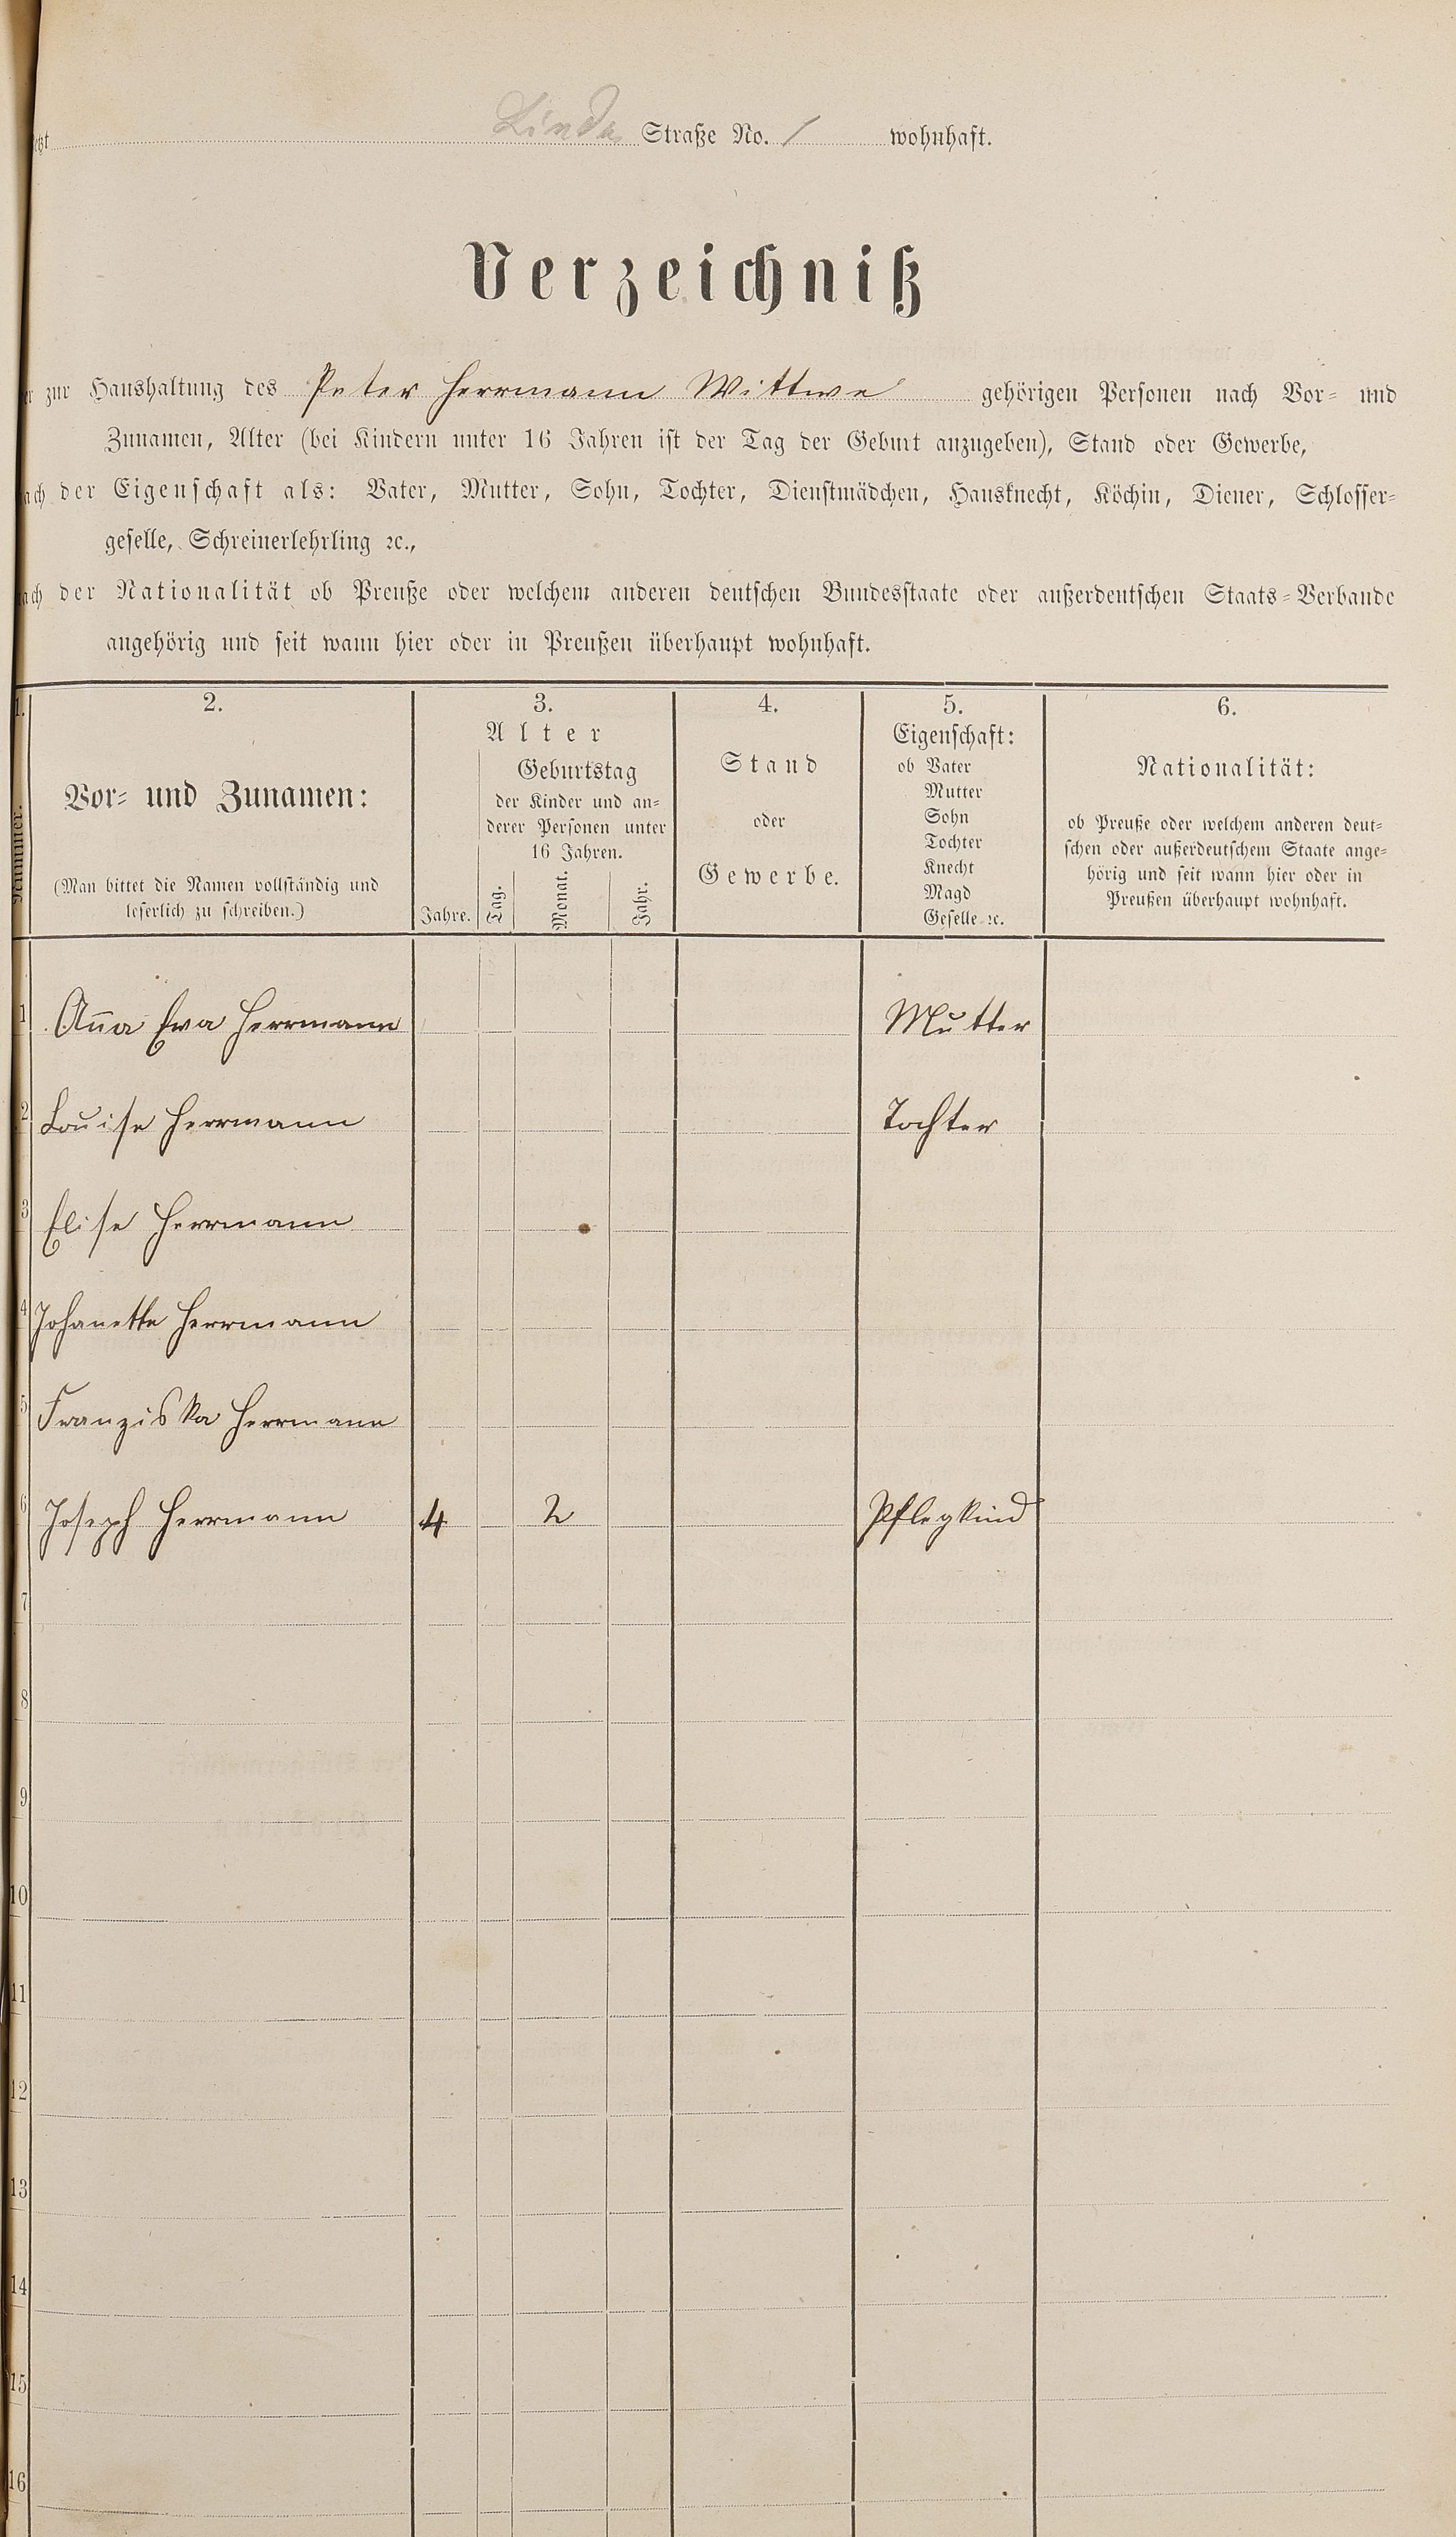 Linden Straße No. 1 wohnhaft.
Verzeichniß
zur Haushaltung des Peter Herrmann Wittwe gehörigen Personen nach Vor- und
Zunamen, Alter (bei Kindern unter 16 Jahren ist der Tag der Geburt anzugeben), Stand oder Gewerbe,
nach der Eigenschaft als: Vater, Mutter, Sohn, Tochter, Dienstmädchen, Hausknecht, Köchin, Diener, Schlosser-
geselle, Schreinerlehrling ꝛc.,
nach der Nationalität ob Preuße oder welchem anderen deutschen Bundesstaate oder außerdeutschen Staats-Verbande
angehörig und seit wann hier oder in Preußen überhaupt wohnhaft.
1. 2. 3. 4. 5. 6.
Nummer.
Vor- und Zunamen:
(Man bittet die Namen vollständig und
leserlich zu schreiben.)
Alter
Jahre.
Geburtstag
der Kinder und an-
derer Personen unter
16 Jahren.
Tag. Monat. Jahr.
Stand
oder
Gewerbe.
Eigenschaft:
ob Vater
Mutter
Sohn
Tochter
Knecht
Magd
Geselle ꝛc.
Nationalität:
ob Preuße oder welchem anderen deut-
schen oder außerdeutschem Staate ange-
hörig und seit wann hier oder in
Preußen überhaupt wohnhaft.
1 Anna Eva Herrmann Mutter
2 Louise Herrmann Tochter
3 Elise Herrmann
4 Johanette Herrmann
5 Franziska Herrmann
6 Joseph Herrmann 4 2 Pflegkind
7
8
9
10
11
12
13
14
15
16